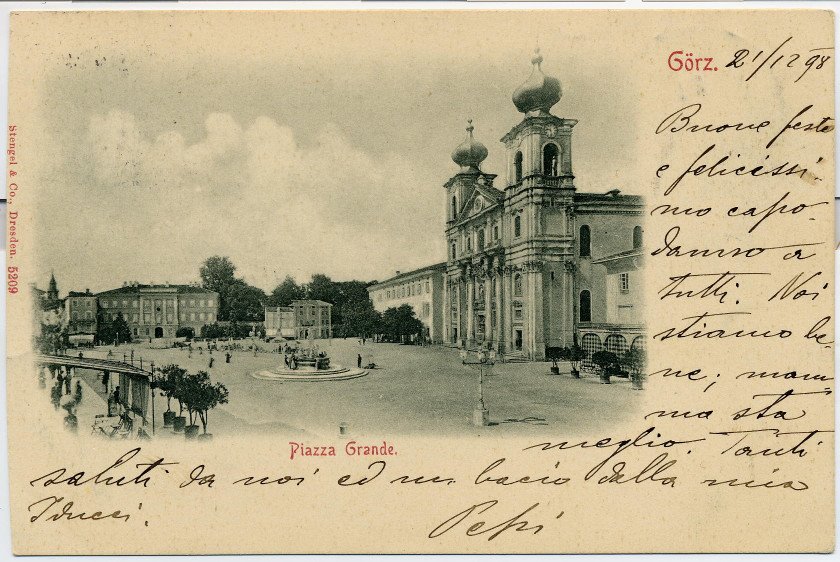 Görz. 21/12 98
Buone feste
e felicissi.
mo capo-
danno a
tutti. Noi
stiamo be
ne; mam
ma sta
meglio. Tanti
saluti da noi ed un bacio dalla mia
Pepi
Piazza Grande.
Stengel & Co., Dresden. 5209